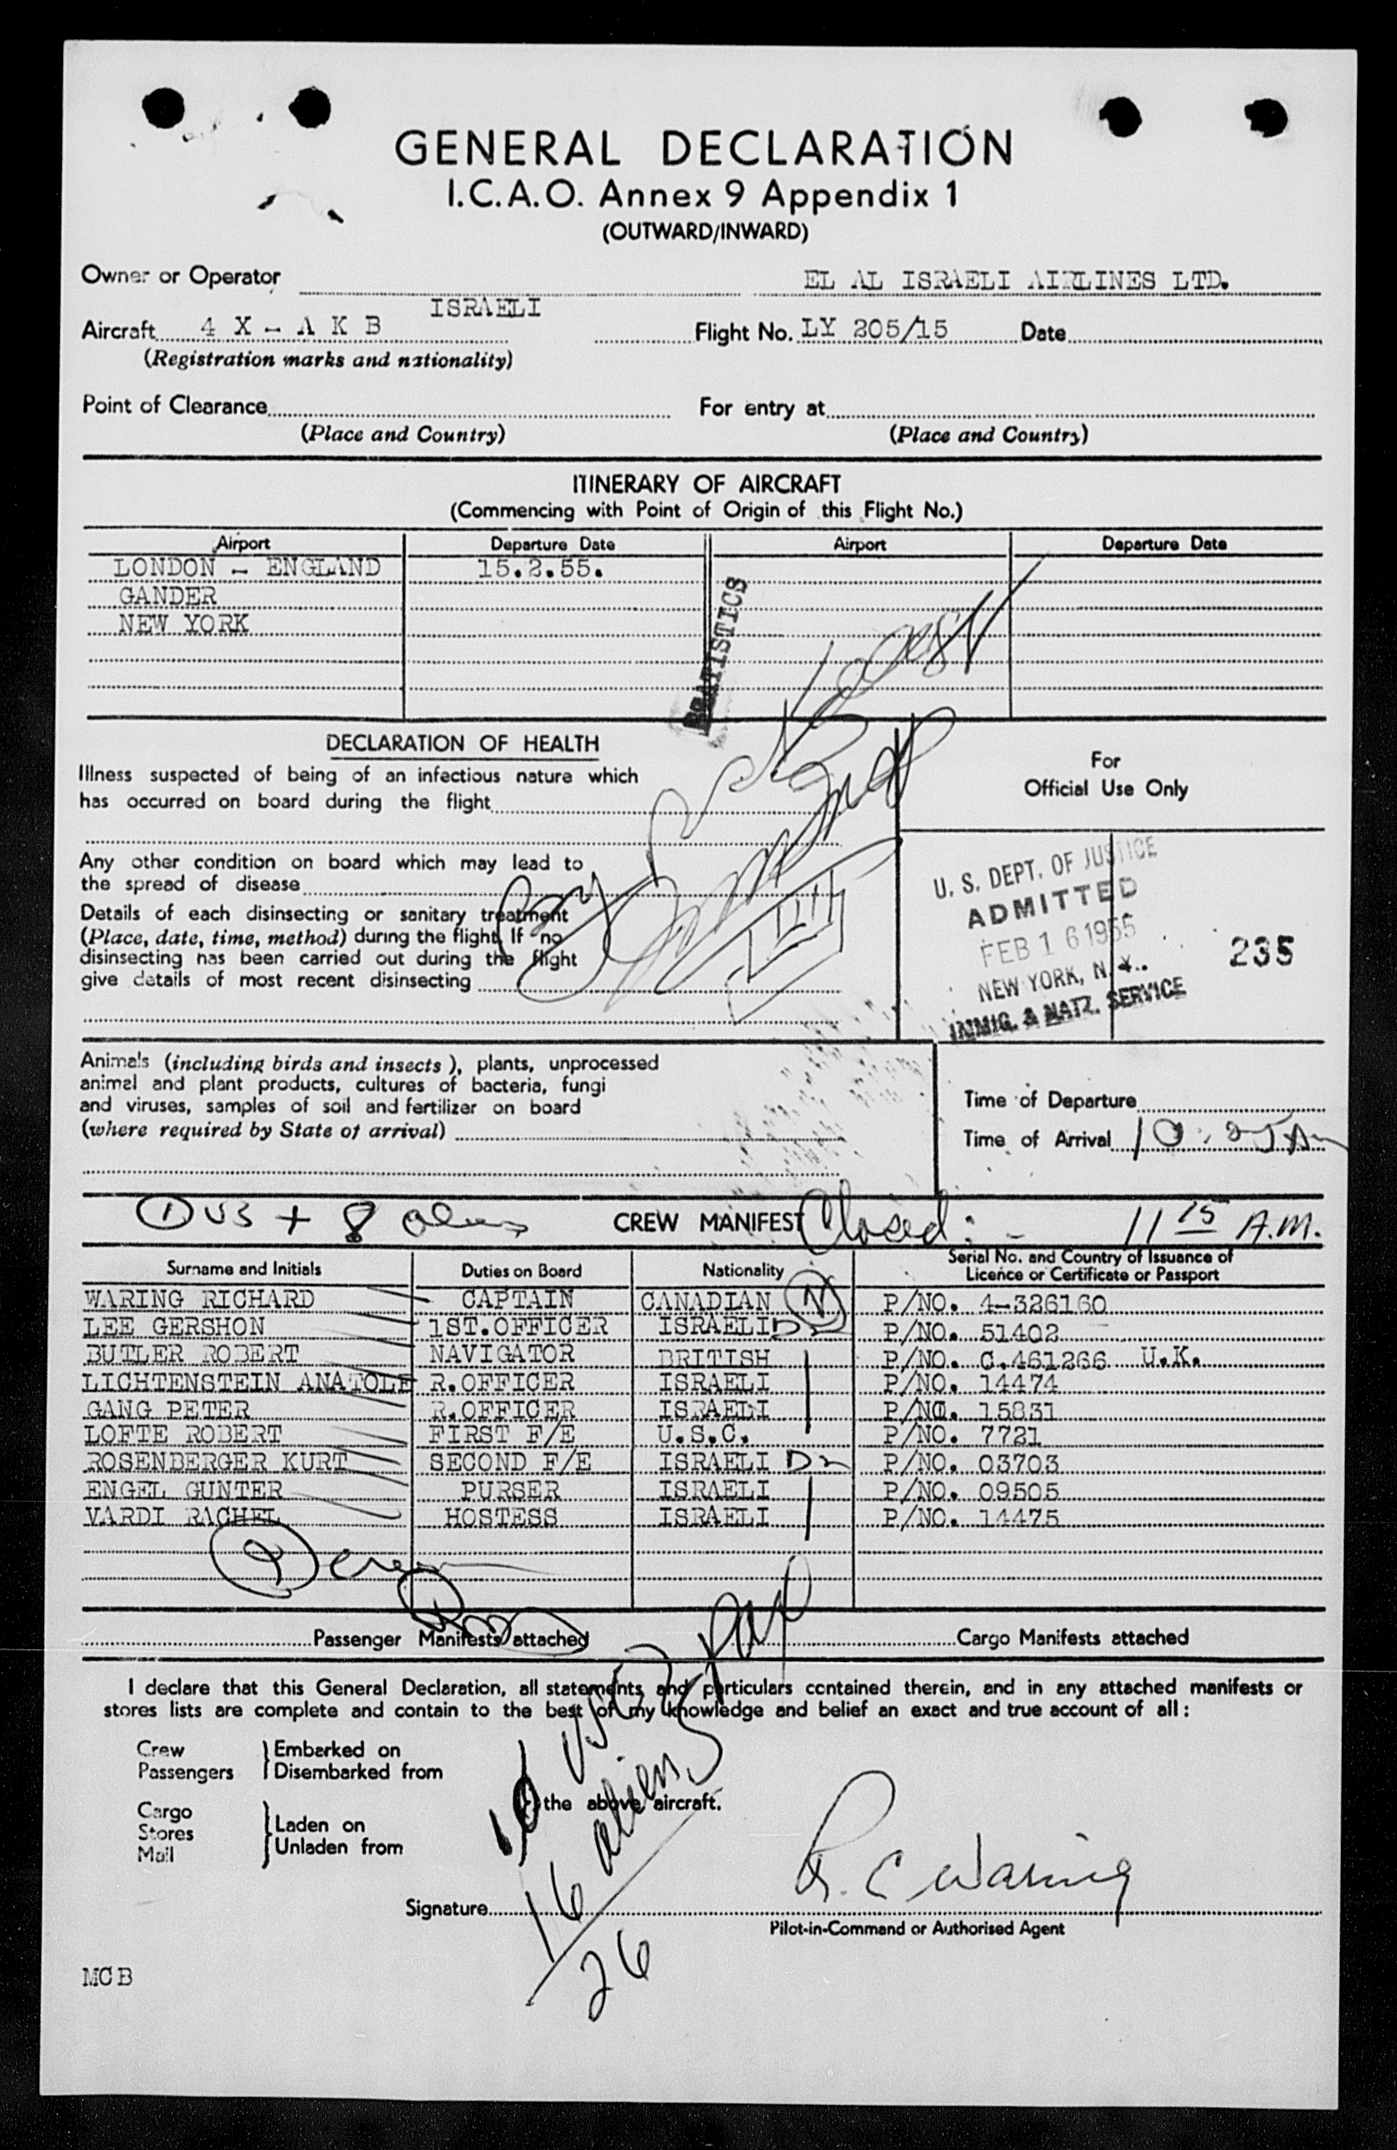 GENERAL DECLARATION
I.C.A.O. Annex 9 Appendix 1
(OUTWARD/INWARD)
Owner or Operator EL AL ISRAELI AIRLINES LTD.
ISRAELI
Aircraft 4 X - A K B Flight No. LY 205/15 Date
(Registration marks and nationality)
Point of Clearance For entry at
(Place and Country) (Place and Country)
ITINERARY OF AIRCRAFT
(Commencing with Point of Origin of this Flight No.)
Airport Departure Date Airport Departure Date
LONDON - ENGLAND 15.2.55.
GANDER
NEW YORK
STATISTICS
DECLARATION OF HEALTH
Illness suspected of being of an infectious nature which
has occurred on board during the flight
Any other condition on board which may lead to
the spread of disease
Details of each disinsecting or sanitary treatment
(Place, date, time, method) during the flight. If no
disinsecting has been carried out during the flight
give details of most recent disinsecting
For
Official Use Only
U. S. DEPT. OF JUSTICE
ADMITTED
FEB 16 1955
NEW YORK, N. Y.
IMMIG. & NATZ. SERVICE
235
Animals (including birds and insects), plants, unprocessed
animal and plant products, cultures of bacteria, fungi
and viruses, samples of soil and fertilizer on board
(where required by State of arrival)
Time of Departure
Time of Arrival 10:25 Am
1 US + 8 aliens CREW MANIFEST Closed:- 11 15 A.M.
Surname and Initials Duties on Board Nationality Serial No. and Country of Issuance of
Licence or Certificate or Passport
WARING RICHARD CAPTAIN CANADIAN N P/NO. 4-326160
LEE GERSHON 1ST.OFFICER ISRAELI D2 P/NO. 51402
BUTLER ROBERT NAVIGATOR BRITISH P/NO. C.461266 U.K.
LICHTENSTEIN ANATOLE R.OFFICER ISRAELI P/NO. 14474
GANG PETER R.OFFICER ISRAELI P/NO. 15831
LOFTE ROBERT FIRST F/E U.S.C. P/NO. 7721
ROSENBERGER KURT SECOND F/E ISRAELI D2 P/NO. 03703
ENGEL GUNTER PURSER ISRAELI P/NO. 09505
VARDI RACHEL HOSTESS ISRAELI P/NO. 14475
9 crew
Passenger Manifests attached Cargo Manifests attached
I declare that this General Declaration, all statements and particulars contained therein, and in any attached manifests or
stores lists are complete and contain to the best of my knowledge and belief an exact and true account of all :
Crew Embarked on
Passengers Disembarked from
the above aircraft.
Cargo Laden on
Stores Unladen from
Mail
10 USC
16 aliens
26
pax
R. C Waring
Signature
Pilot-in-Command or Authorised Agent
MCB